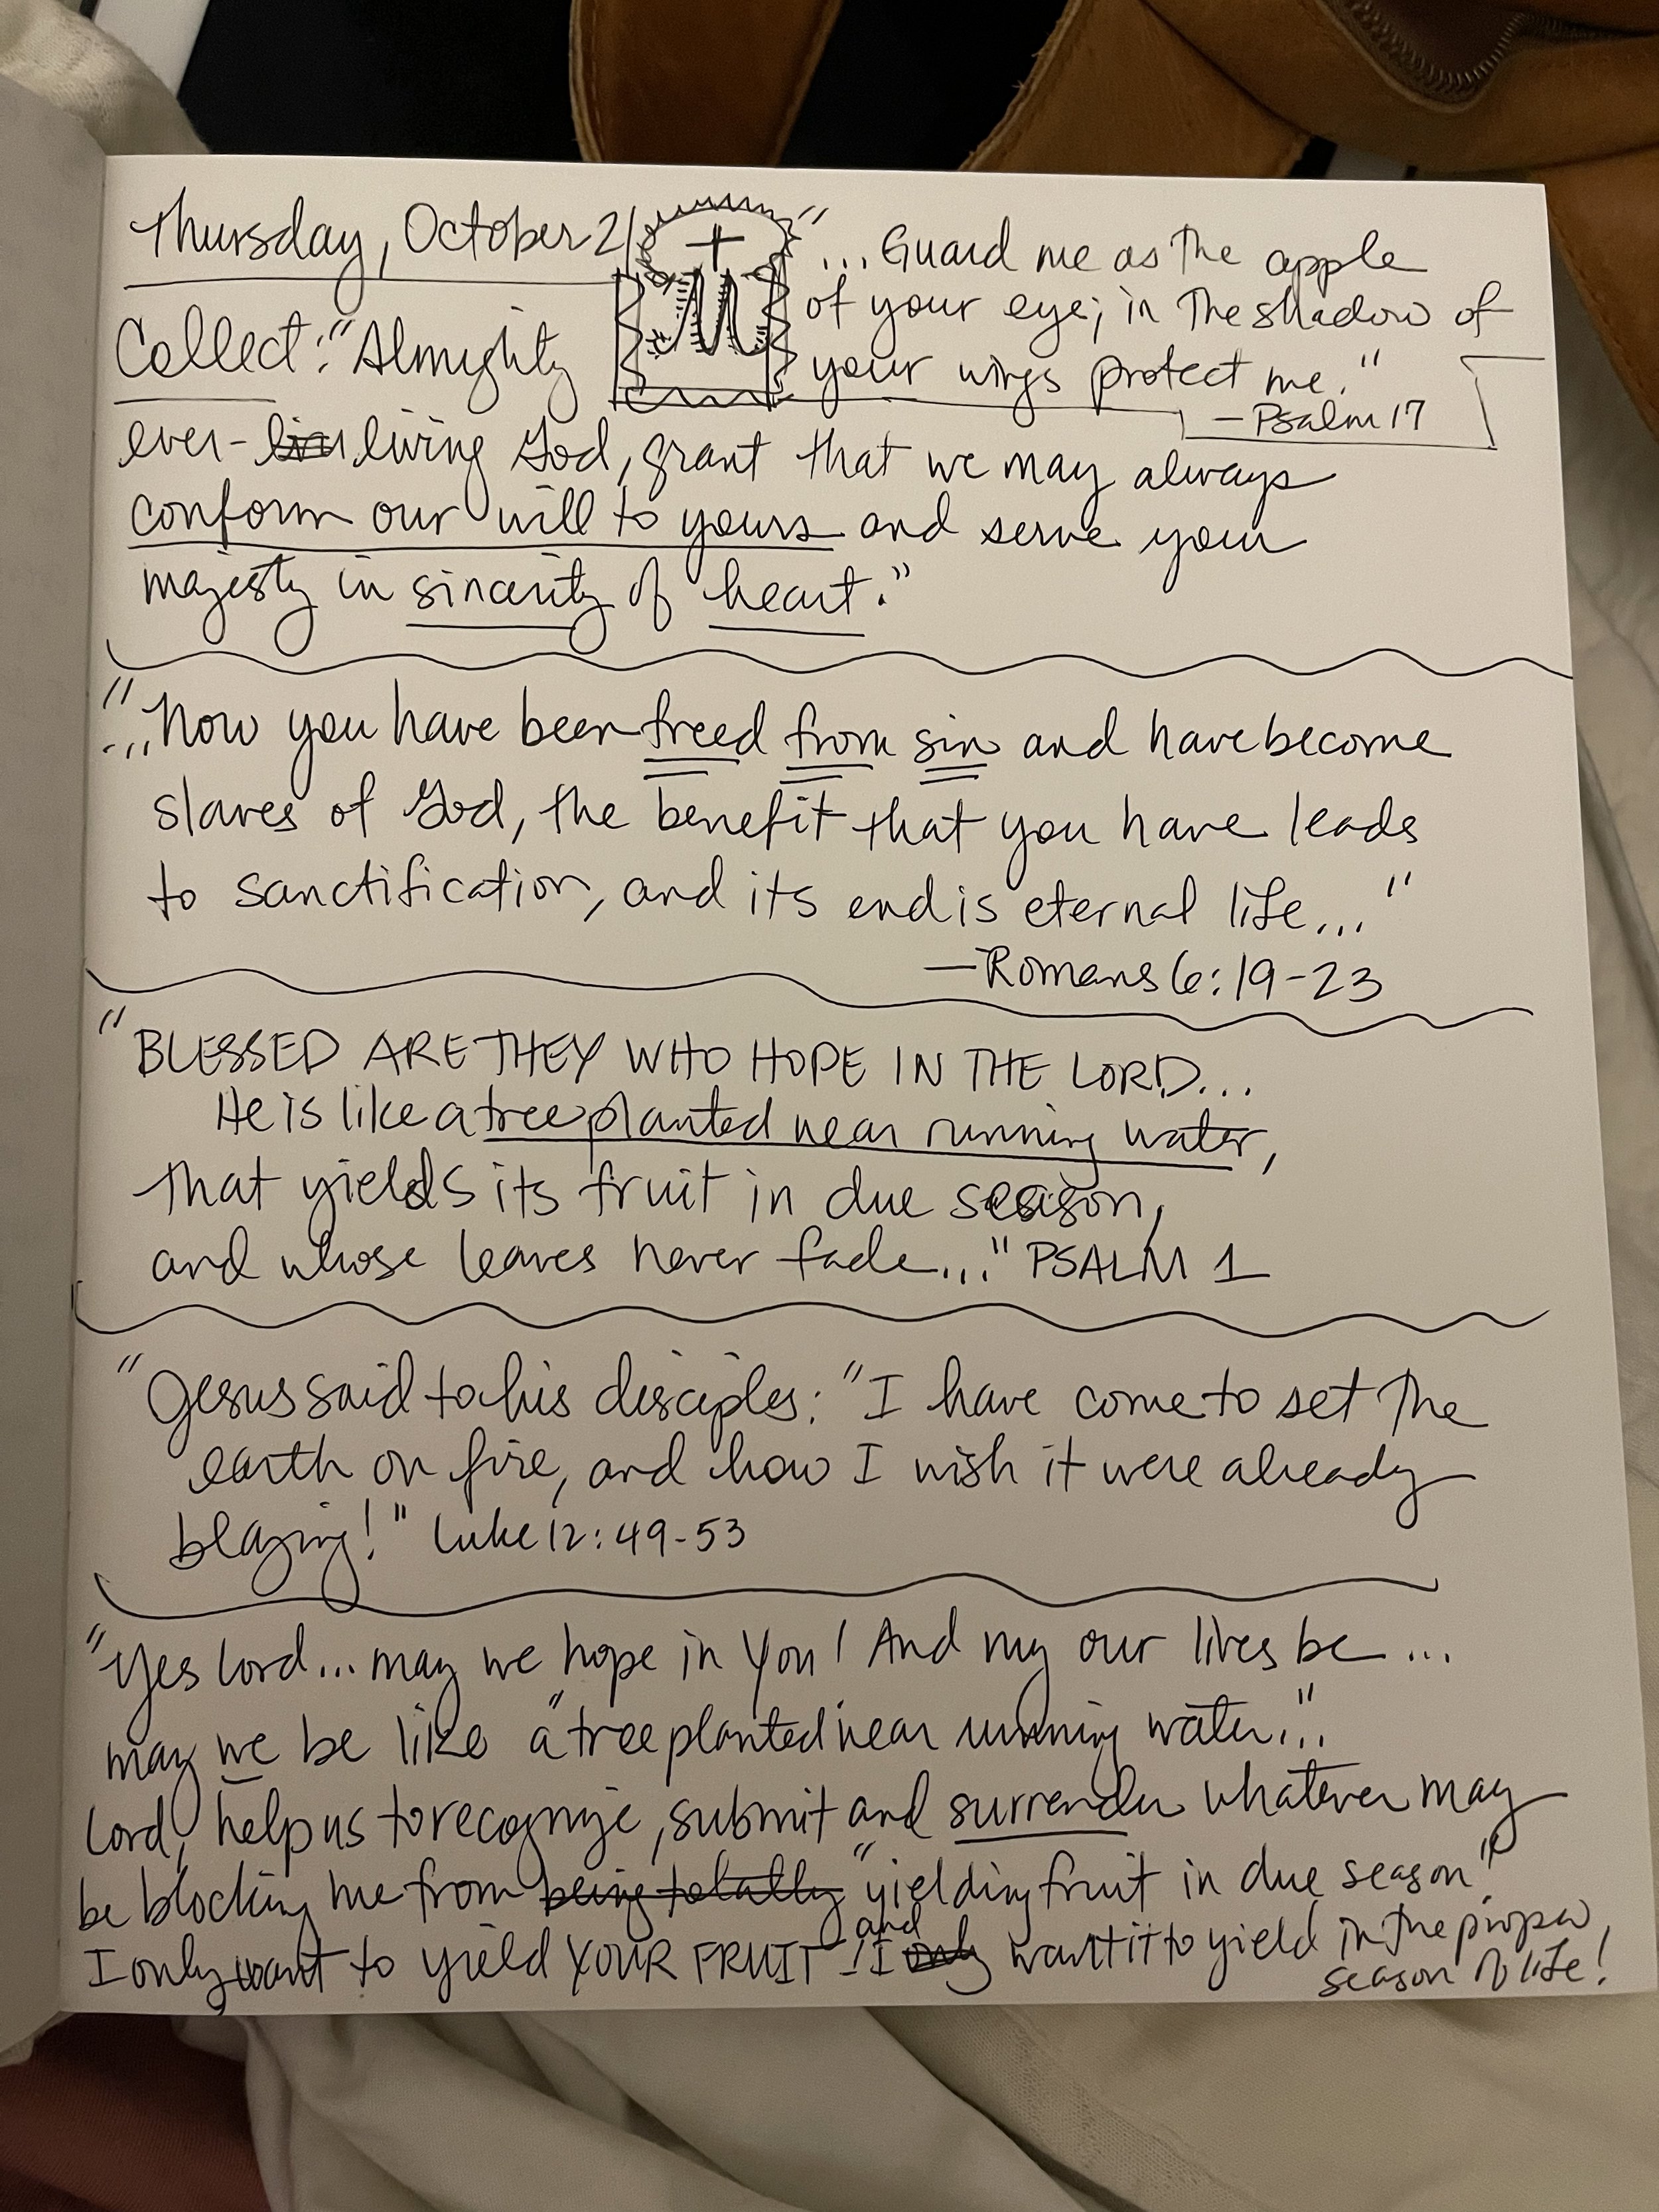 Thursday, October 21
"... Guard me as the apple
of your eye; in the shadow of
your wings protect me."
—Psalm 17
Collect: "Almighty
ever-living God, grant that we may always
conform our will to yours and serve your
majesty in sincerity of heart."
"...Now you have been freed from sin and have become
slaves of God, the benefit that you have leads
to sanctification, and its end is eternal life..."
—Romans 6:19-23
"BLESSED ARE THEY WHO HOPE IN THE LORD...
He is like a tree planted near running water,
that yields its fruit in due season,
and whose leaves never fade..." PSALM 1
"Jesus said to his disciples: "I have come to set the
earth on fire, and how I wish it were already
blazing!" Luke 12:49-53
"Yes Lord... may we hope in You! And my our lives be...
may we be like "a tree planted near running water..."
Lord, help us to recognize, submit and surrender whatever may
be blocking me from being totally "yielding fruit in due season"
I only want to yield YOUR FRUIT-! and I only want it to yield in the proper
season of life!